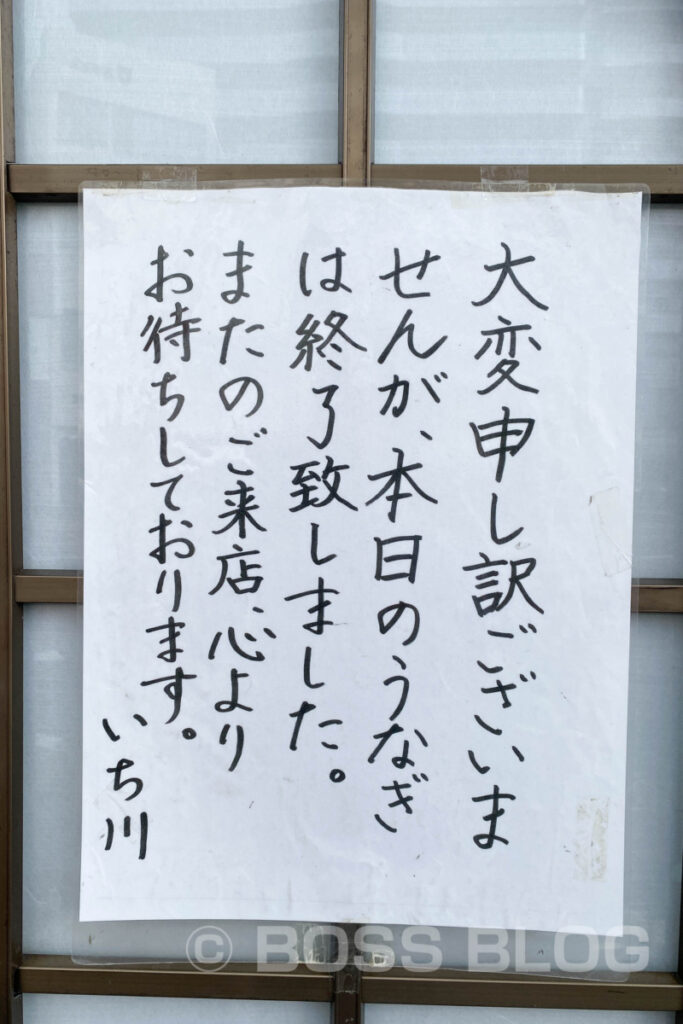 大変申し訳ございま
せんが、本日のうなぎ
は終了致しました。
またのご来店、心より
お待ちしております。
いち川
© BOSS BLOG